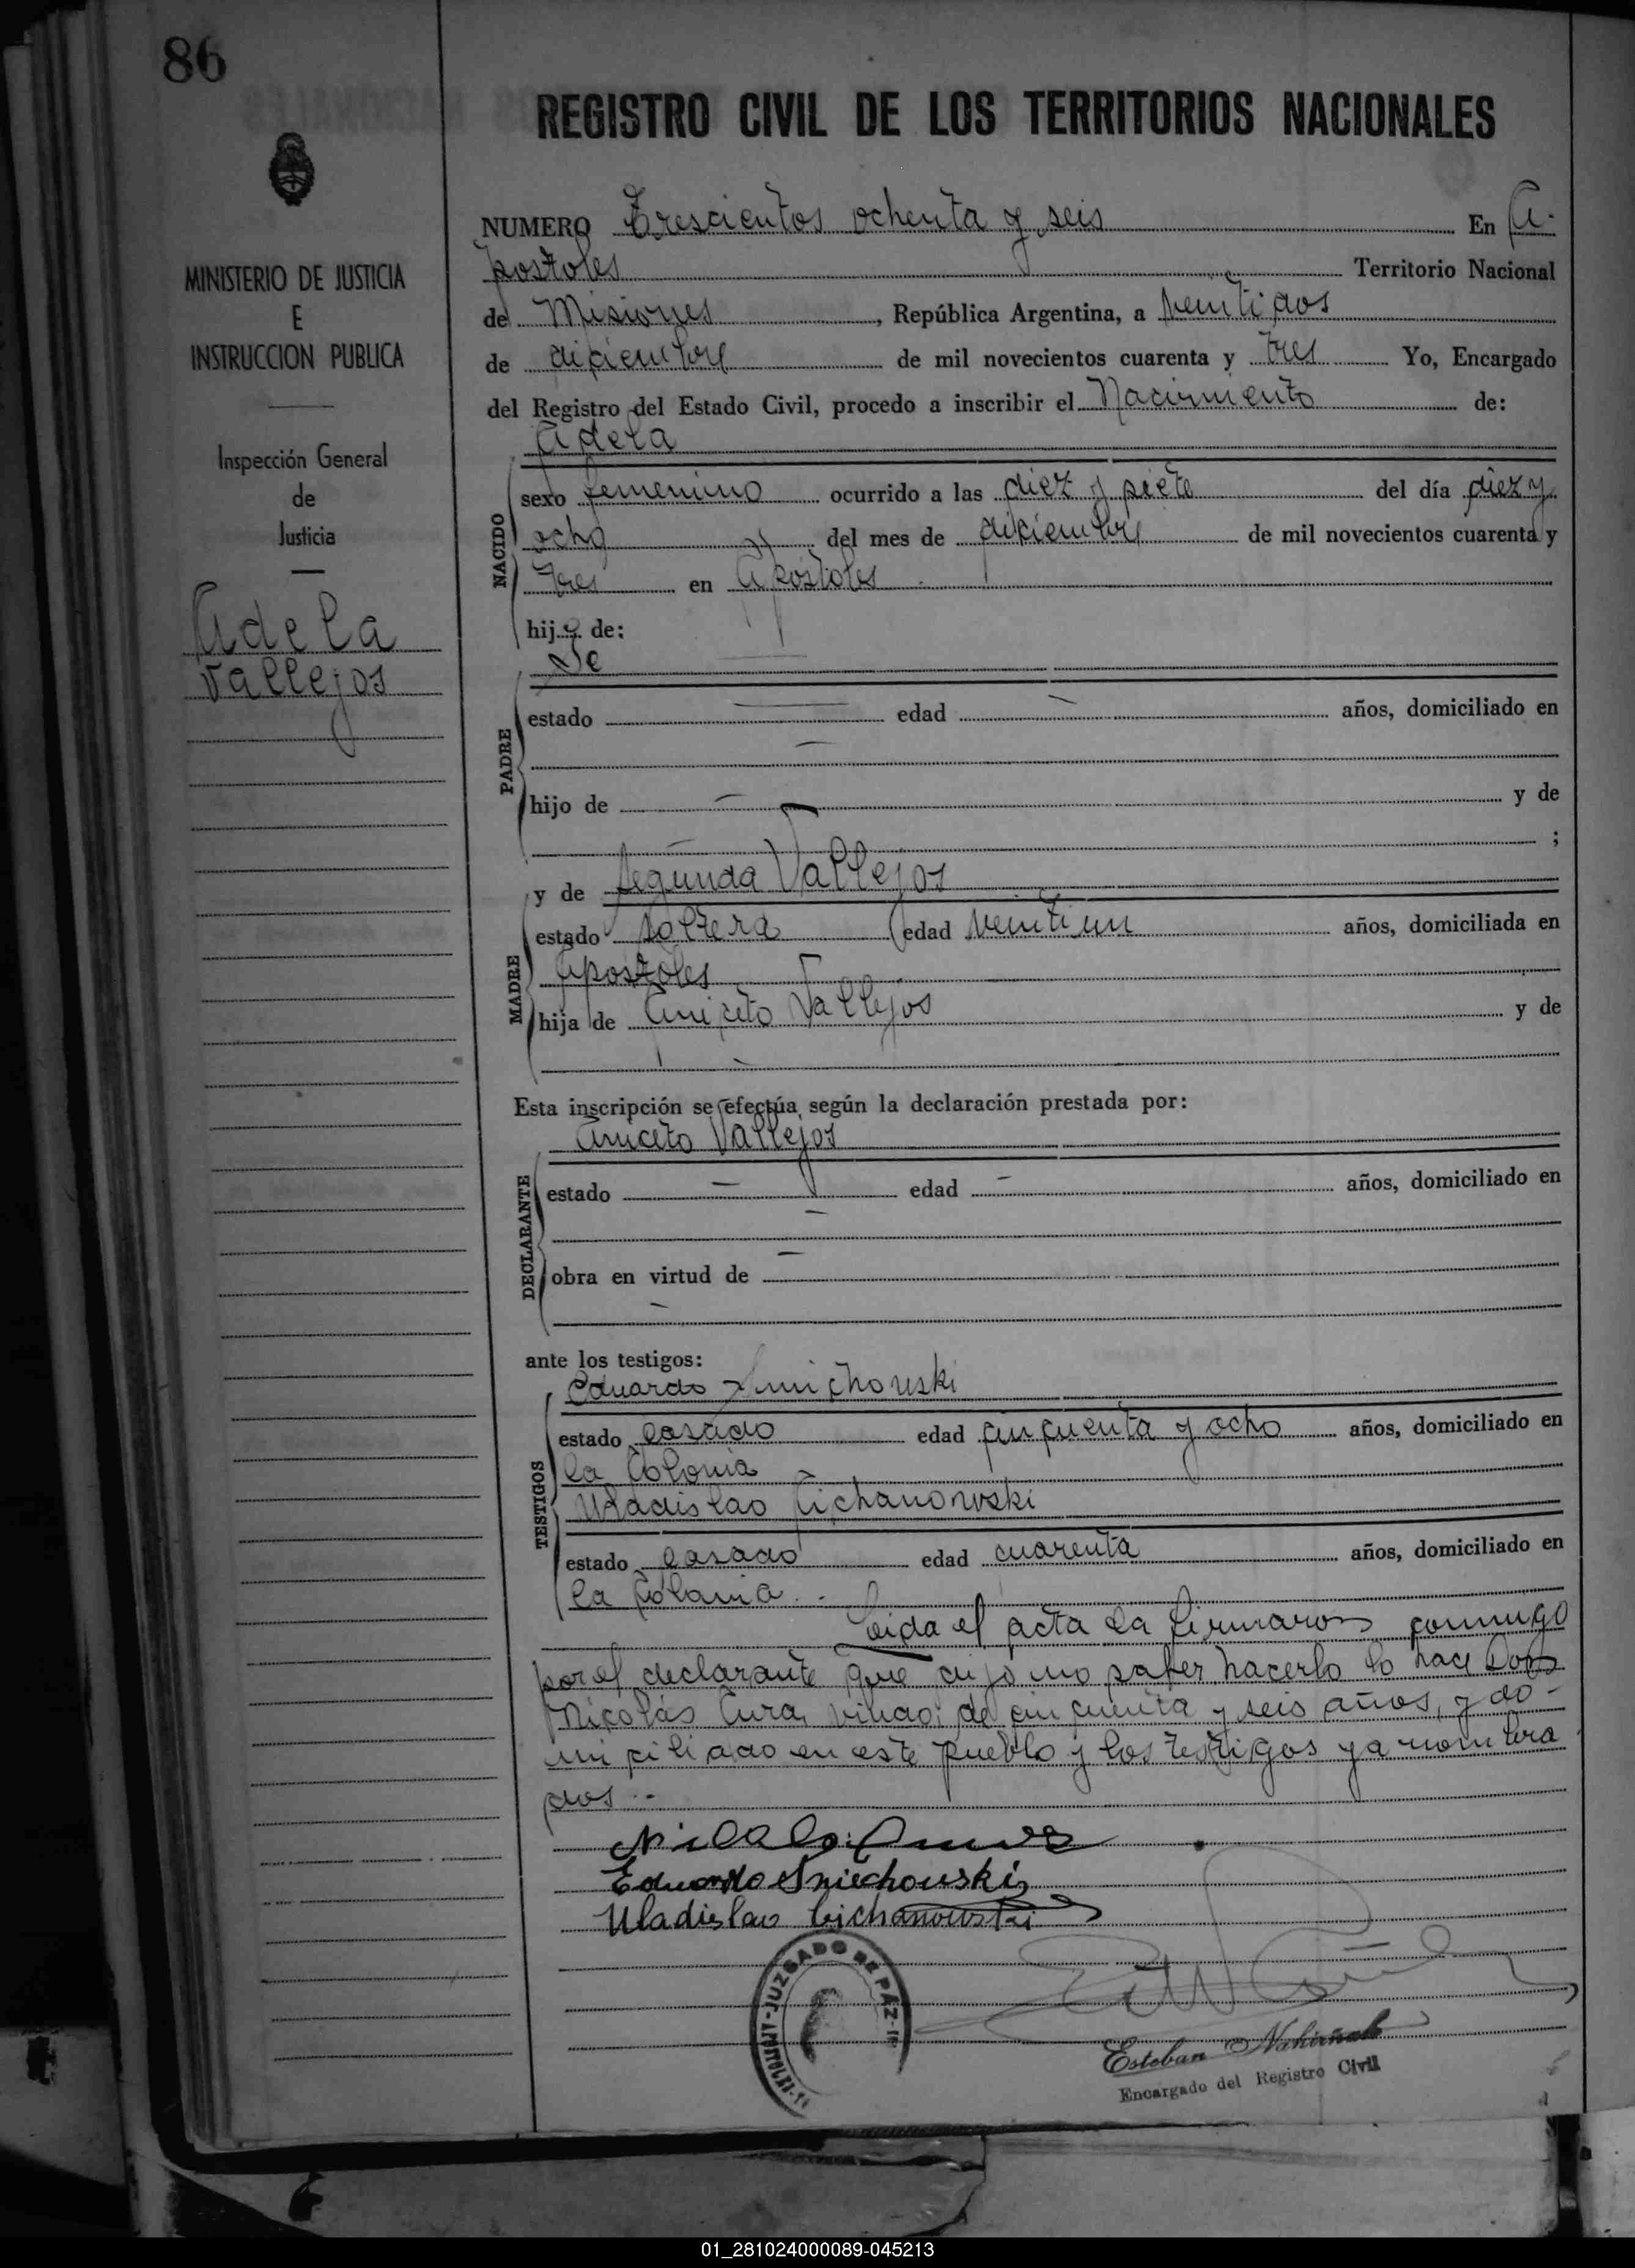 86
REGISTRO CIVIL DE LOS TERRITORIOS NACIONALES
MINISTERIO DE JUSTICIA
E
INSTRUCCION PUBLICA
Inspección General
de
Justicia
Adela
Vallejos
NUMERO Trescientos ochenta y seis En A-
postoles Territorio Nacional
de Misiones, República Argentina, a veintidos
de diciembre de mil novecientos cuarenta y tres Yo, Encargado
del Registro del Estado Civil, procedo a inscribir el Nacimiento de:
Adela
NACIDO
sexo femenino ocurrido a las diez y siete del día diez y
ocho del mes de diciembre de mil novecientos cuarenta y
tres en Apostoles
hij de:
PADRE
estado — edad — años, domiciliado en
—
hijo de — y de
— ;
MADRE
y de Segunda Vallejos
estado soltera edad veintiun años, domiciliada en
Apostoles
hija de Aniceto Vallejos y de
—
Esta inscripción se efectúa según la declaración prestada por:
Aniceto Vallejos
DECLARANTE
estado — edad — años, domiciliado en
—
obra en virtud de —
—
ante los testigos:
Eduardo Sniechowski
TESTIGOS
estado casado edad cincuenta y ocho años, domiciliado en
la Colonia
Uladislao Cichanowski
estado casado edad cuarenta años, domiciliado en
la Colonia.-
Leida el acta la firmaron conmigo
por el declarante que dijo no saber hacerlo lo hace Don
Nicolás viudo, de cincuenta y seis años, y do-
miciliado en este pueblo y los testigos ya nombra
dos.-
Eduardo Sniechowski
Uladislao Cichanowski
JUZGADO DE PAZ
APOSTOLES
Esteban Nahirñak
Encargado del Registro Civil
01_281024000089-045213